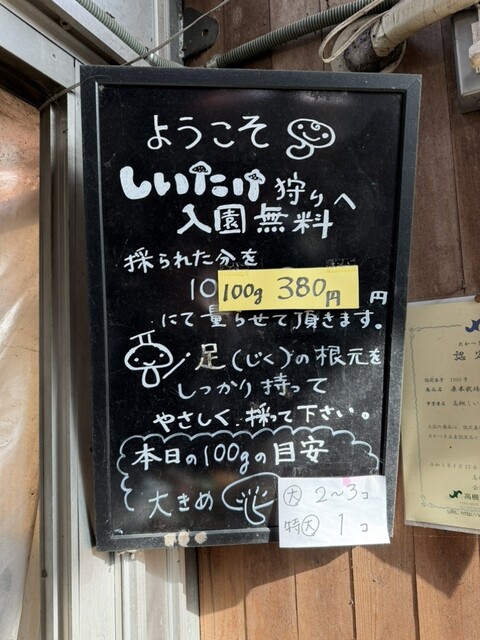 ようこそ
しいたけ狩りへ
入園無料
採られた分を
10
100g 380円
円
にて量らせて頂きます。
足(じく)の根元を
しっかり持って
やさしく採って下さい。
本日の100gの目安
大きめ
大 2～3コ
特大 1コ